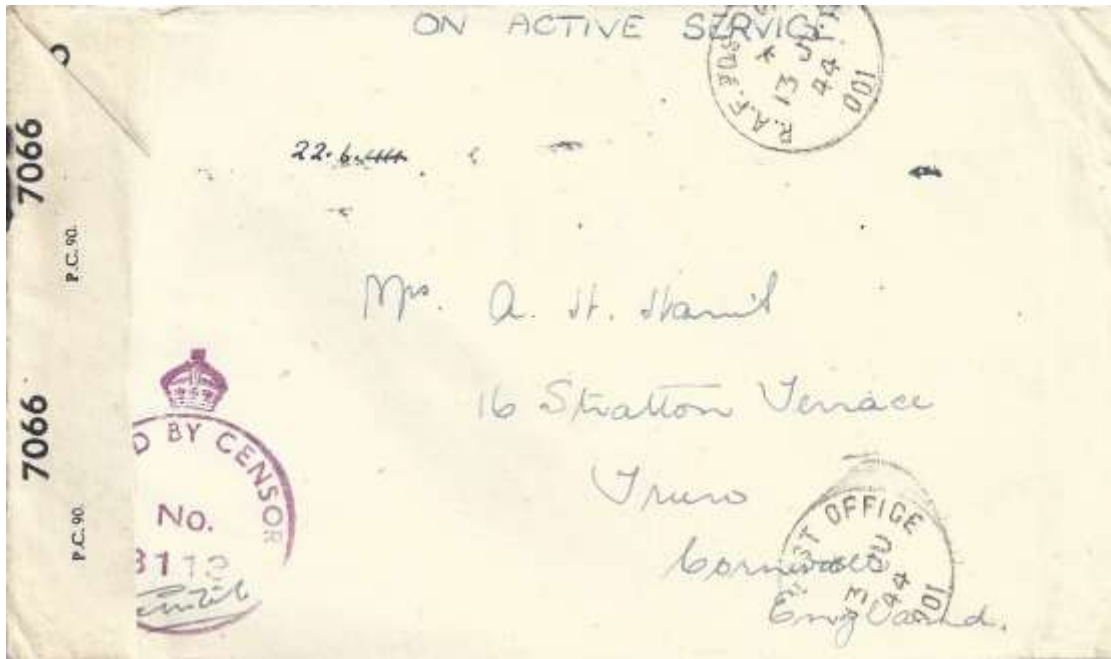 ON ACTIVE SERVICE
R.A.F. POST
13 JU
44
001
22.6.
7066
P.C. 90.
7066
P.C. 90.
Mrs. A. H.
16 Stratton Terrace
Truro
Cornwall
England.
D BY CENSOR
No.
POST OFFICE
13 JU
44
001